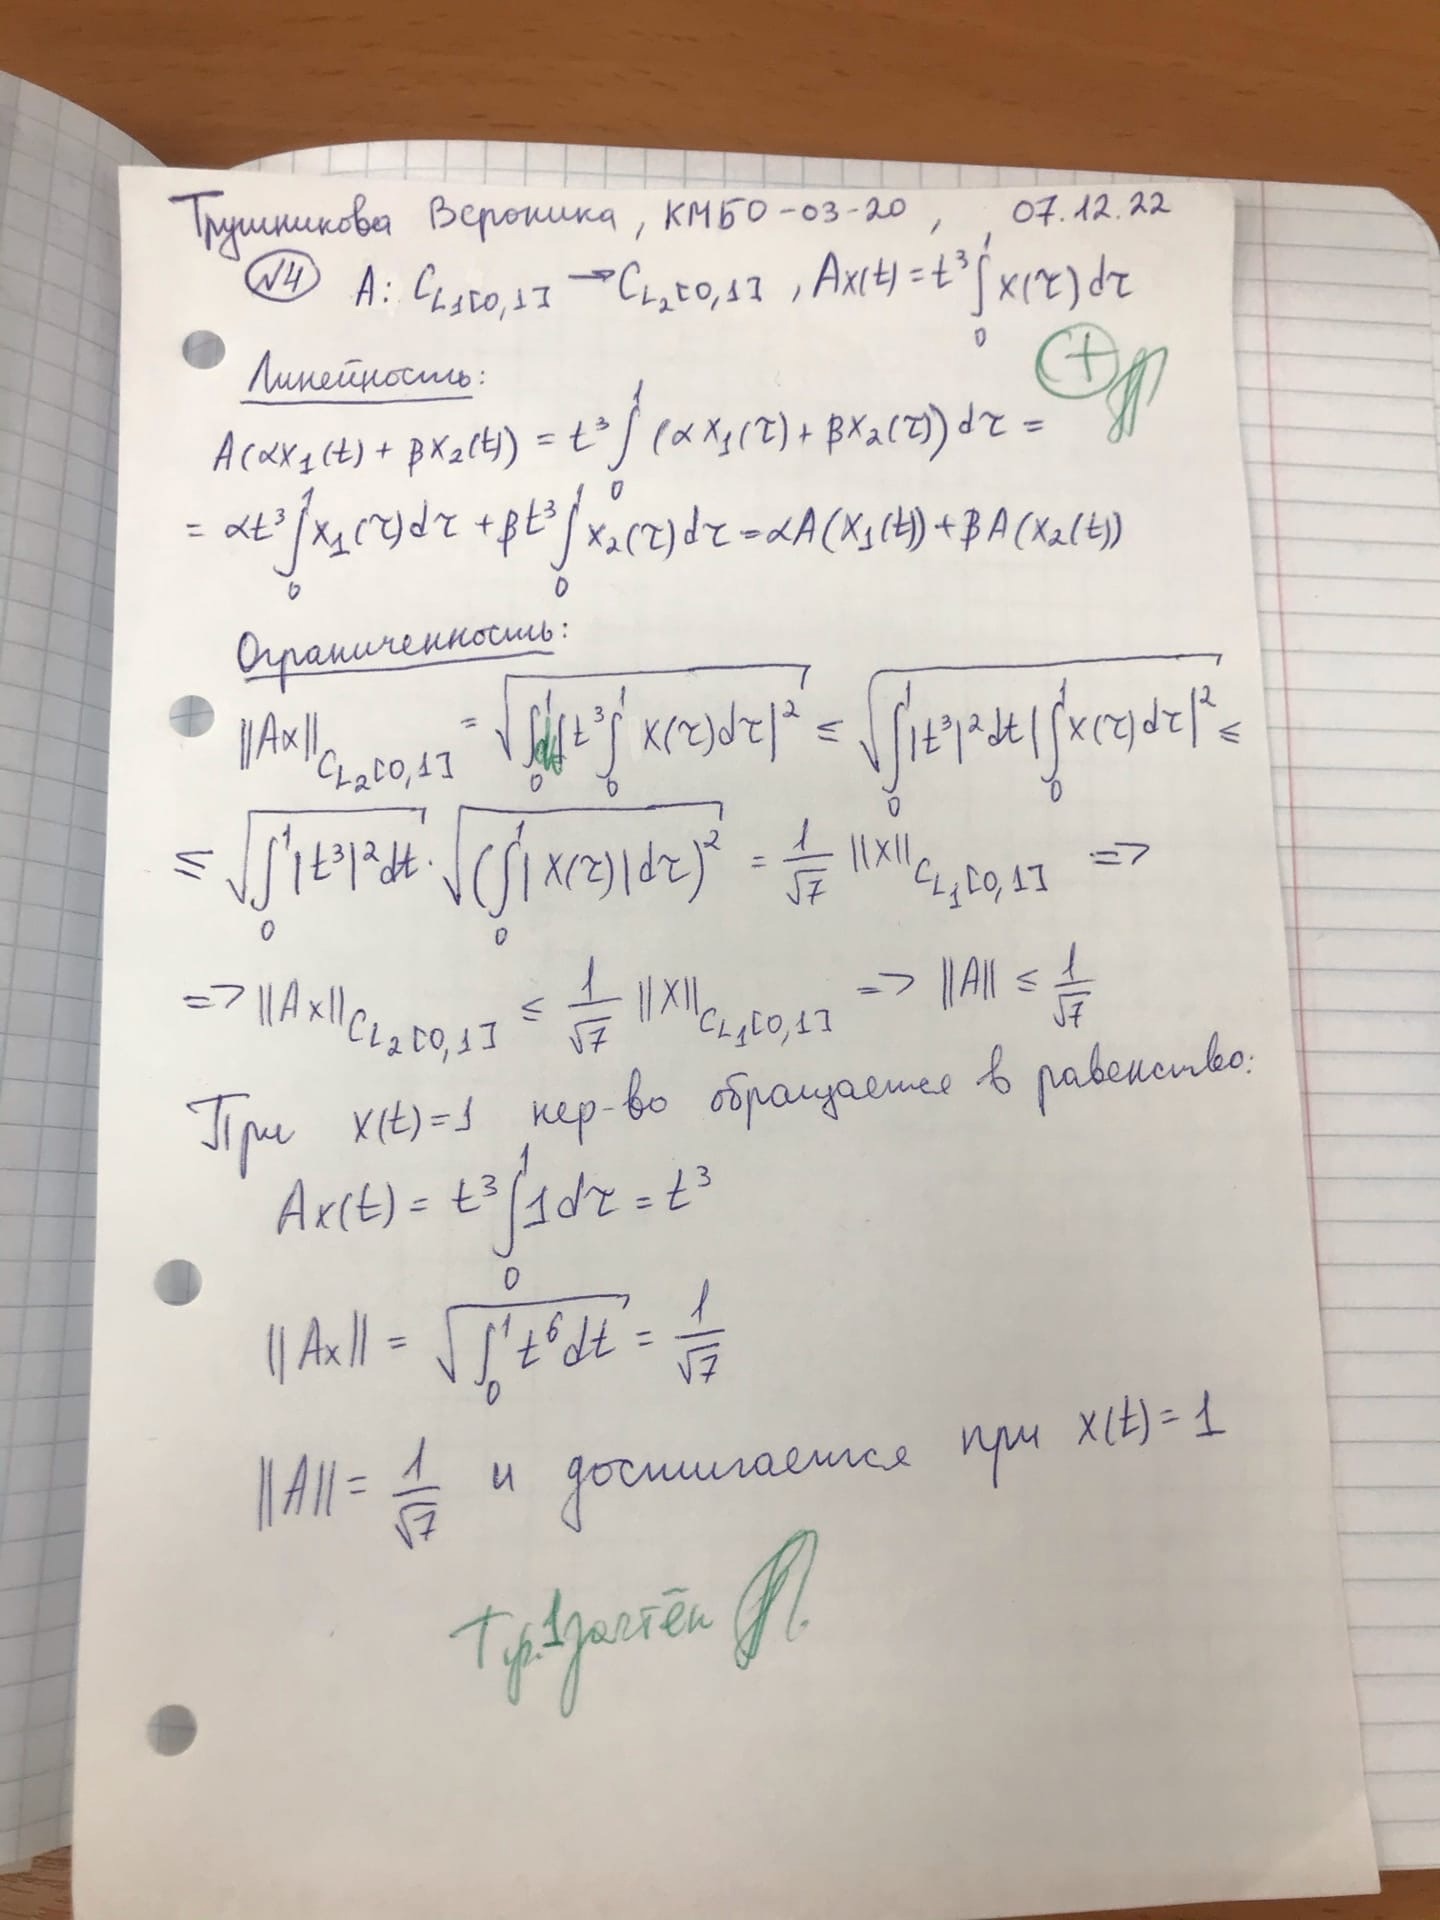 Трушникова Вероника, КМБО-03-20, 07.12.22
№4 A: C_{L_1[0,1]} → C_{L_2[0,1]}, Ax(t) = t³∫₀¹ x(τ)dτ
+
Линейность:
A(αx₁(t) + βx₂(t)) = t³∫₀¹ (αx₁(τ) + βx₂(τ))dτ =
= αt³∫₀¹ x₁(τ)dτ + βt³∫₀¹ x₂(τ)dτ = αA(x₁(t)) + βA(x₂(t))
Ограниченность:
||Ax||_{C_{L_2[0,1]}} = √(∫₀¹ dt |t³∫₀¹ x(τ)dτ|²) ≤ √(∫₀¹ |t³|²dt |∫₀¹ x(τ)dτ|²) ≤
≤ √(∫₀¹ |t³|²dt) · √((∫₀¹ |x(τ)|dτ)²) = 1/√7 ||x||_{C_{L_1[0,1]}} =>
=> ||Ax||_{C_{L_2[0,1]}} ≤ 1/√7 ||x||_{C_{L_1[0,1]}} => ||A|| ≤ 1/√7
При x(t)=1 нер-во обращается в равенство:
Ax(t) = t³∫₀¹ 1dτ = t³
||Ax|| = √(∫₀¹ t⁶dt) = 1/√7
||A|| = 1/√7 и достигается при x(t)=1
Т.р.1 зачтён